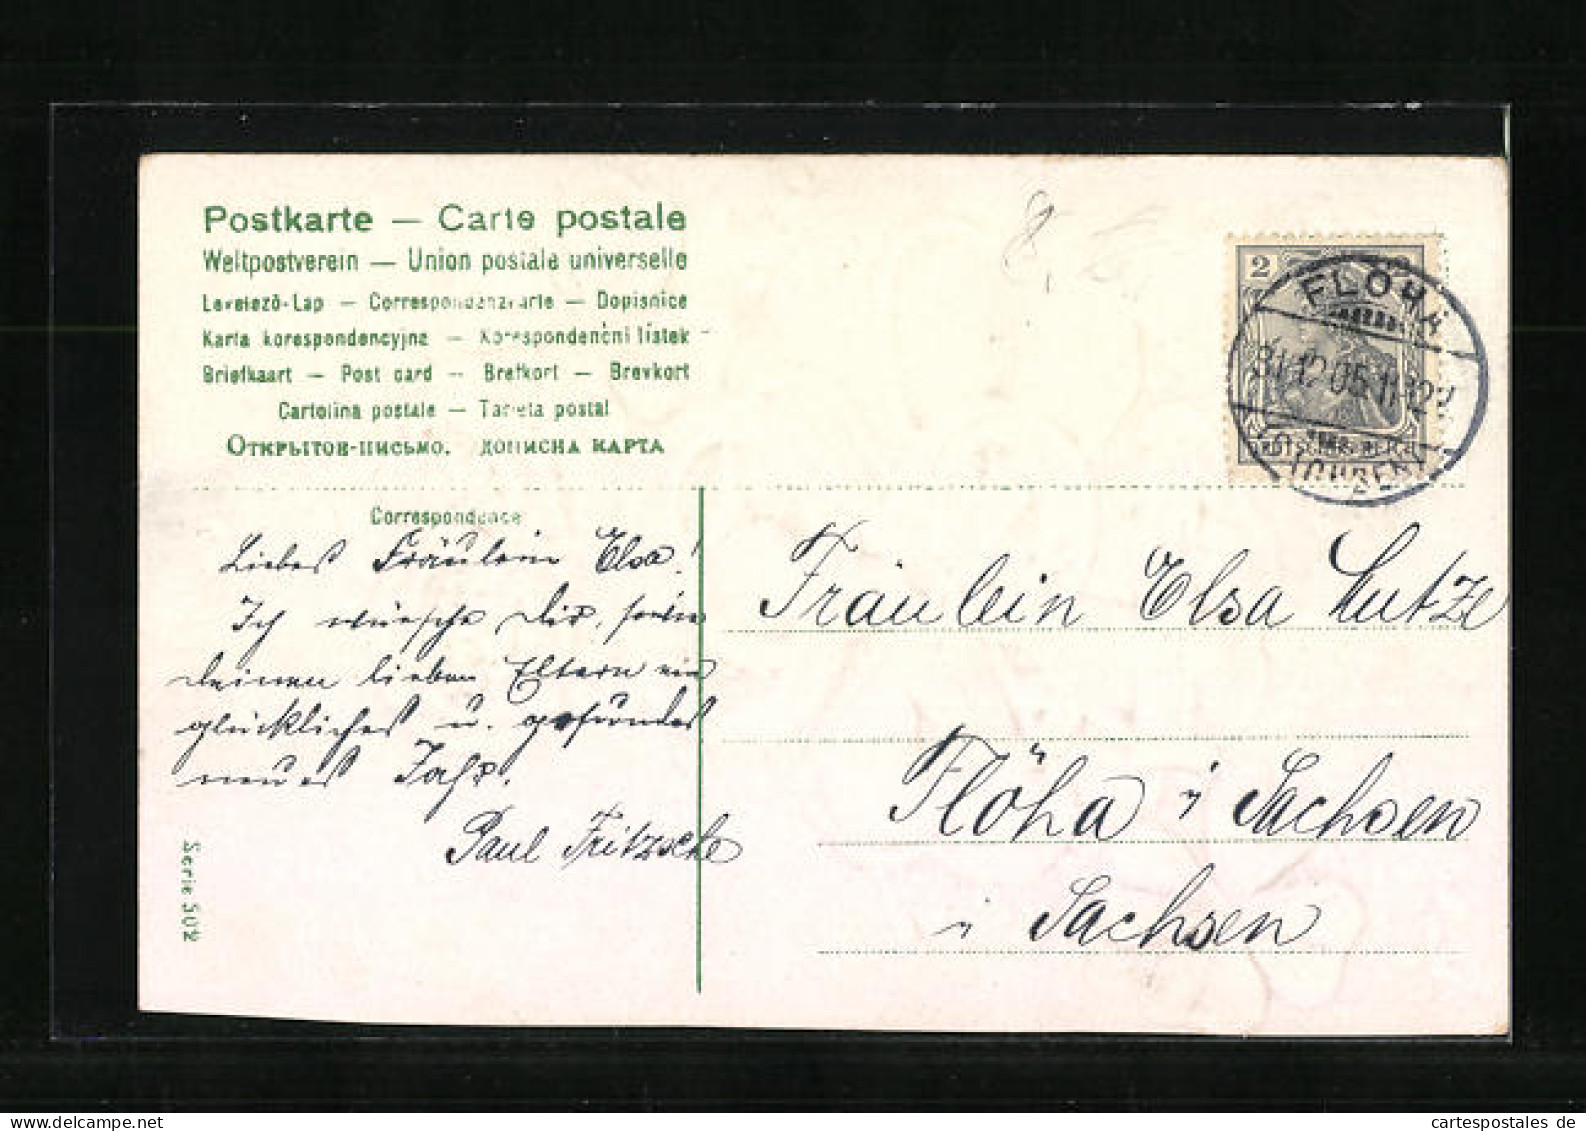 Postkarte — Carte postale
Weltpostverein — Union postale universelle
Levelezö-Lap — Correspondenzkarte — Dopisnice
Karta korespondencyjna — Korespondenčni lístek
Briefkaart — Post card — Brefkort — Brevkort
Cartolina postale — Tarjeta postal
Открытое-письмо. дописна карта
Correspondance
Liebes Fräulein Elsa!
Ich wünsche Dir, sowie
deinen lieben Eltern ein
glückliches u. gesundes
neues Jahr.
Paul Fritzsche
Serie 502
2
FLÖHA
31.12.05.11-12V
DEUTSCHES REICH
(SACHSEN)
Fräulein Elsa Lutze
Flöha i Sachsen
i Sachsen
cartespostales.de
cartespostales de